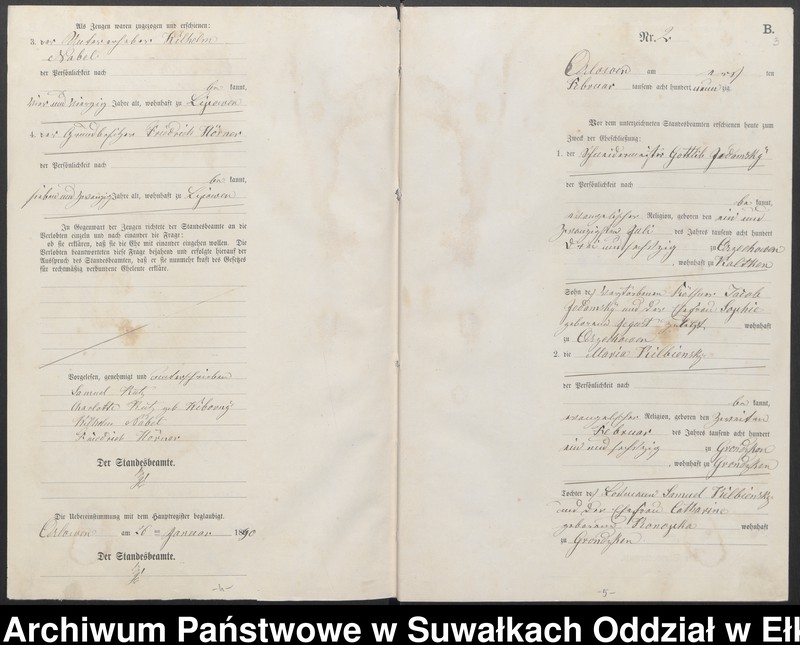 Als Zeugen waren zugezogen und erschienen:
3. der Unterverheber Wilhelm
Nabel
der Persönlichkeit nach
be kannt,
vier und vierzig Jahre alt, wohnhaft zu Lipowen
4. der Grundbesitzer Friedrich Hödner
der Persönlichkeit nach
be kannt,
sieben und zwanzig Jahre alt, wohnhaft zu Lipowen
In Gegenwart der Zeugen richtete der Standesbeamte an die
Verlobten einzeln und nach einander die Frage:
ob sie erklären, daß sie die Ehe mit einander eingehen wollen. Die
Verlobten beantworteten diese Frage bejahend und erfolgte hierauf der
Ausspruch des Standesbeamten, daß er sie nunmehr kraft des Gesetzes
für rechtmäßig verbundene Eheleute erkläre.
Vorgelesen, genehmigt und unterschrieben
Samuel
Charlotte geb
Wilhelm Nabel
Friedrich Hödner
Der Standesbeamte.
Die Uebereinstimmung mit dem Hauptregister beglaubigt.
Orlowen am 26 ten Januar 1890
Der Standesbeamte.
-4-
B.
3
Nr. 2
Orlowen am ersten
Februar tausend acht hundert neunzig
Vor dem unterzeichneten Standesbeamten erschienen heute zum
Zweck der Eheschließung:
1. der Schneidermeister Gottlieb Jedamsky
der Persönlichkeit nach
be kannt,
evangelischer Religion, geboren den ein und
zwanzigsten Juli des Jahres tausend acht hundert
drei und sechzig zu Orzechowen
, wohnhaft zu Kaltken
Sohn des verstorbenen Käthner Jacob
Jedamsky und der Ehefrau Sophie
geborene wohnhaft
zu Orzechowen
2. die Maria Kilbiensky
der Persönlichkeit nach
be kannt,
evangelischer Religion, geboren den zweiten
Februar des Jahres tausend acht hundert
ein und sechzig zu Grondzken
, wohnhaft zu Grondzken
Tochter des Losmann Samuel Kilbiensky
und der Ehefrau Catharine
geborene Konopka wohnhaft
zu Grondzken
-5-
Archiwum Państwowe w Suwałkach Oddział w Ełk